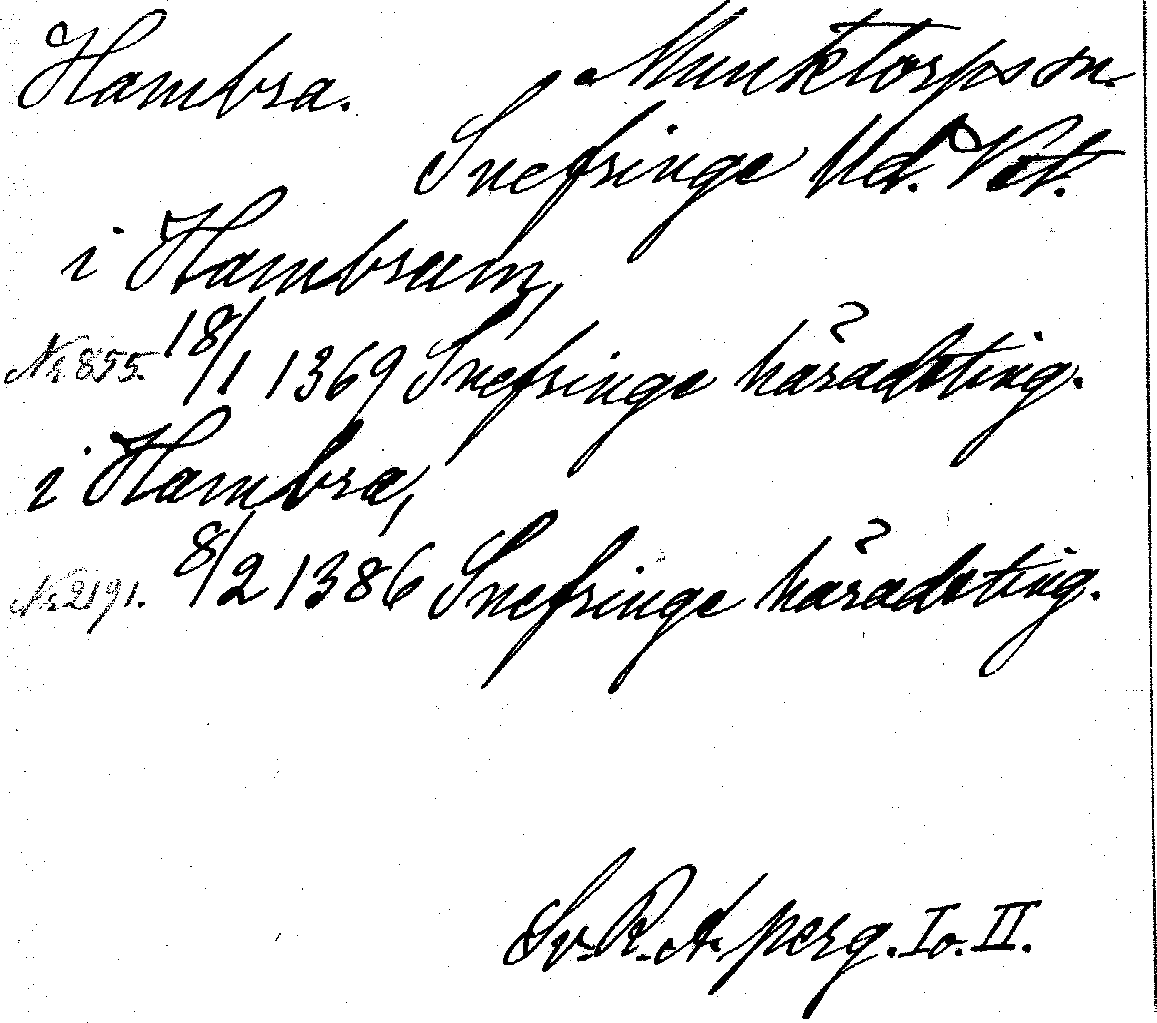 Hambra. Munktorps sn.
Snefringe hd. Vstl.
i Hambrum,
Nr 855. 18/1 1369 Snefringe häradsting.
i Hambra,
Nr 2191. 8/2 1386 Snefringe häradsting.
Sv. R. A. perg. I o. II.